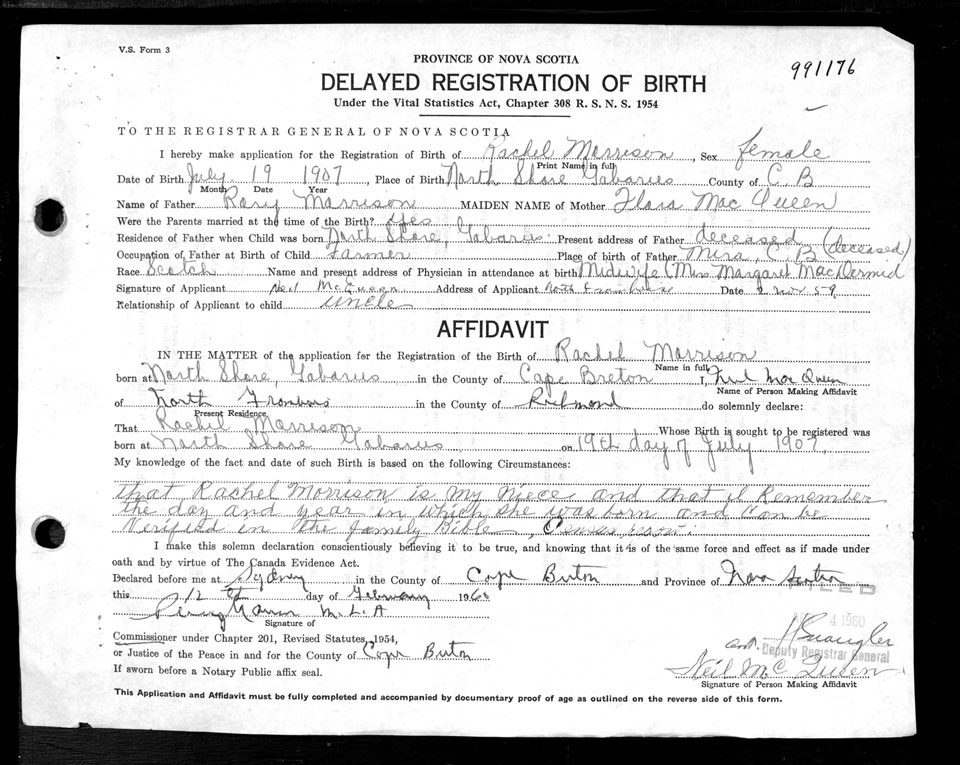 V.S. Form 3
PROVINCE OF NOVA SCOTIA
991176
DELAYED REGISTRATION OF BIRTH
Under the Vital Statistics Act, Chapter 308 R. S. N. S. 1954
TO THE REGISTRAR GENERAL OF NOVA SCOTIA
I hereby make application for the Registration of Birth of Rachel Morrison, Sex female
Print Name in full
Date of Birth July 19 1907, Place of Birth North Shore Gabarus County of C. B
Month Date Year
Name of Father Rory Morrison MAIDEN NAME of Mother Flora Mac Queen
Were the Parents married at the time of the Birth? Yes
Residence of Father when Child was born North Shore, Gabarus Present address of Father deceased
Occupation of Father at Birth of Child Farmer Place of birth of Father Mira, C. B (deceased)
Race Scotch Name and present address of Physician in attendance at birth Midwife (Mrs. Margaret MacDermid
Signature of Applicant Neil McQueen Address of Applicant North Date 2 Nov. 59
Relationship of Applicant to child uncle
AFFIDAVIT
IN THE MATTER of the application for the Registration of the Birth of Rachel Morrison
Name in full
born at North Shore, Gabarus in the County of Cape Breton I, Neil Mac Queen
Name of Person Making Affidavit
of North in the County of Richmond do solemnly declare:
Present Residence
That Rachel Morrison Whose Birth is sought to be registered was
born at North Shore Gabarus on 19th day of July 1907
My knowledge of the fact and date of such Birth is based on the following Circumstances:
that Rachel Morrison is my niece and that I Remember
the day and year in which she was born and can be
Verified in the family Bible, Census
I make this solemn declaration conscientiously believing it to be true, and knowing that it is of the same force and effect as if made under
oath and by virtue of The Canada Evidence Act.
Declared before me at Sydney in the County of Cape Breton and Province of Nova Scotia
FILED
this 12th day of February 1960
4 1960
M.L.A
Signature of
Commissioner under Chapter 201, Revised Statutes, 1954,
or Justice of the Peace in and for the County of Cape Breton
Deputy Registrar General
If sworn before a Notary Public affix seal.
Neil Mc Queen
Signature of Person Making Affidavit
This Application and Affidavit must be fully completed and accompanied by documentary proof of age as outlined on the reverse side of this form.